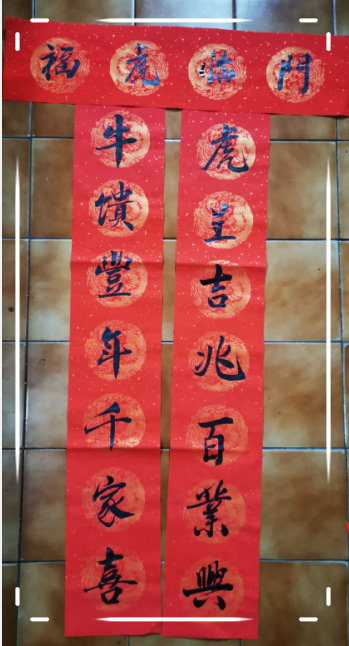 福虎临門
牛饋豐年千家喜
虎呈吉兆百業興